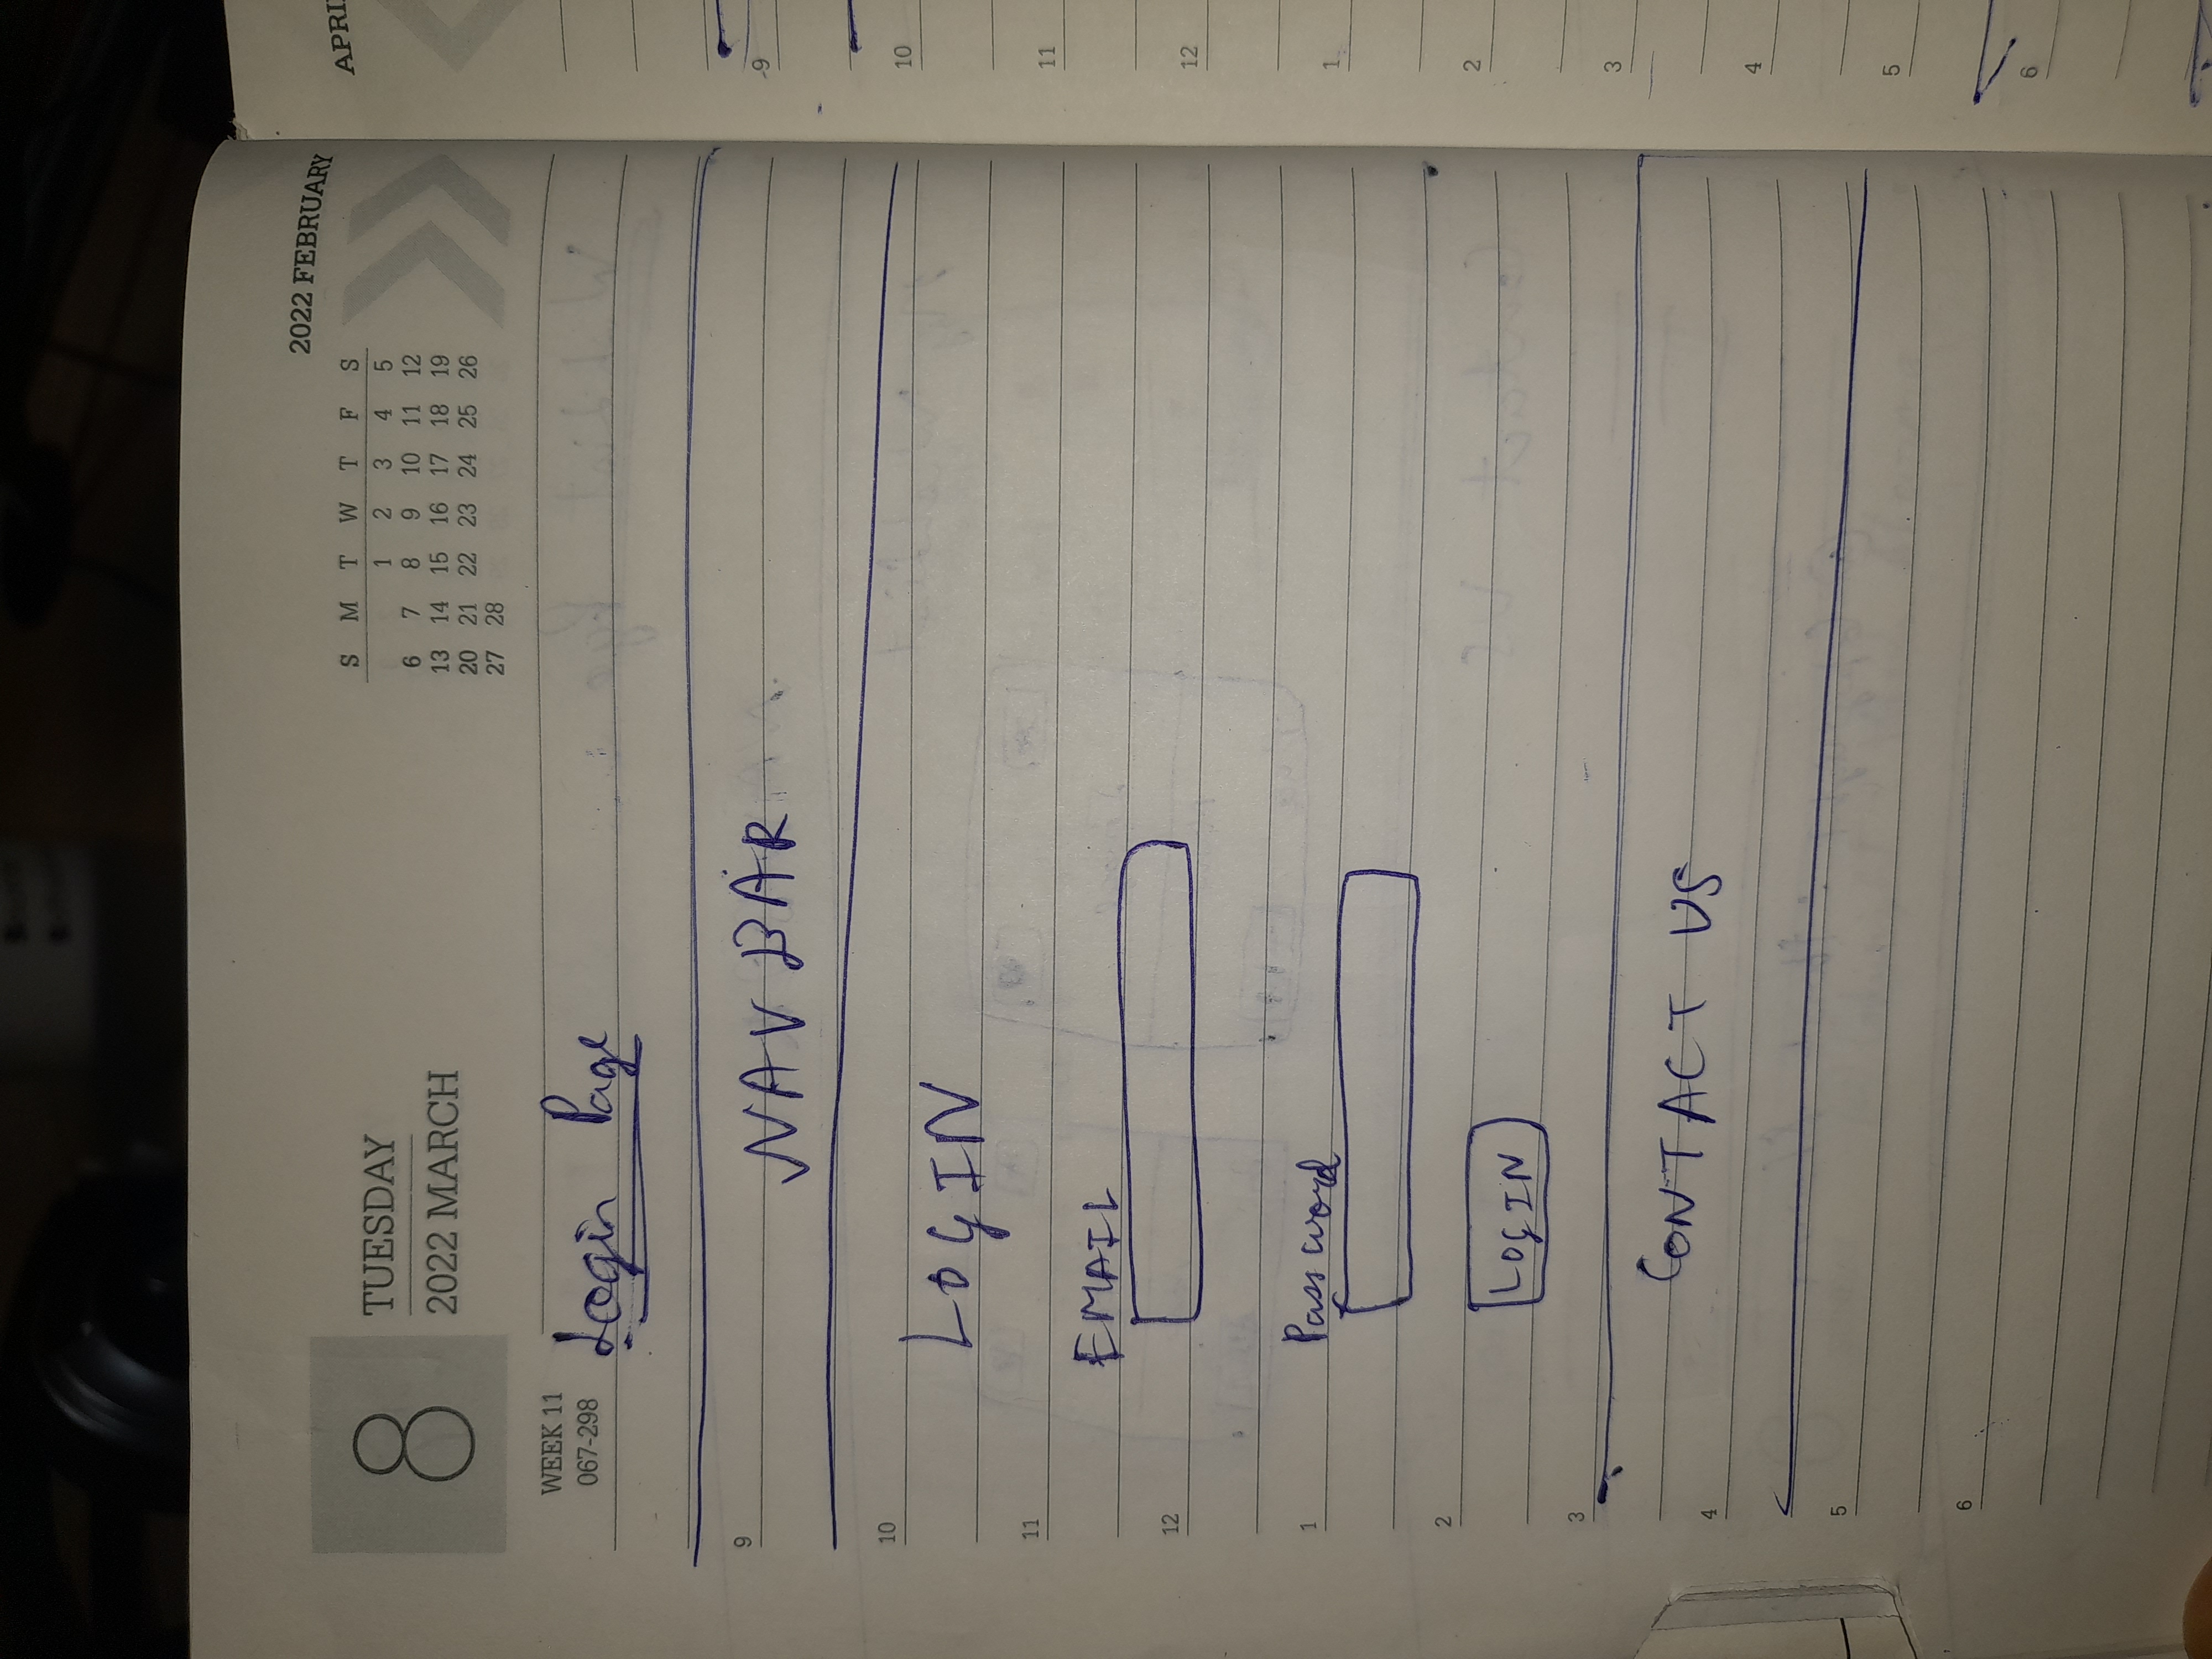 2022 FEBRUARY
APRI
8
TUESDAY
2022 MARCH
S M T W T F S
1 2 3 4 5
6 7 8 9 10 11 12
13 14 15 16 17 18 19
20 21 22 23 24 25 26
27 28
WEEK 11
067-298
Login Page
9
NAV BAR
10
LOGIN
11
EMAIL
12
1
Password
2
LOGIN
3
CONTACT US
4
5
6
9
10
11
12
1
2
3
4
5
6